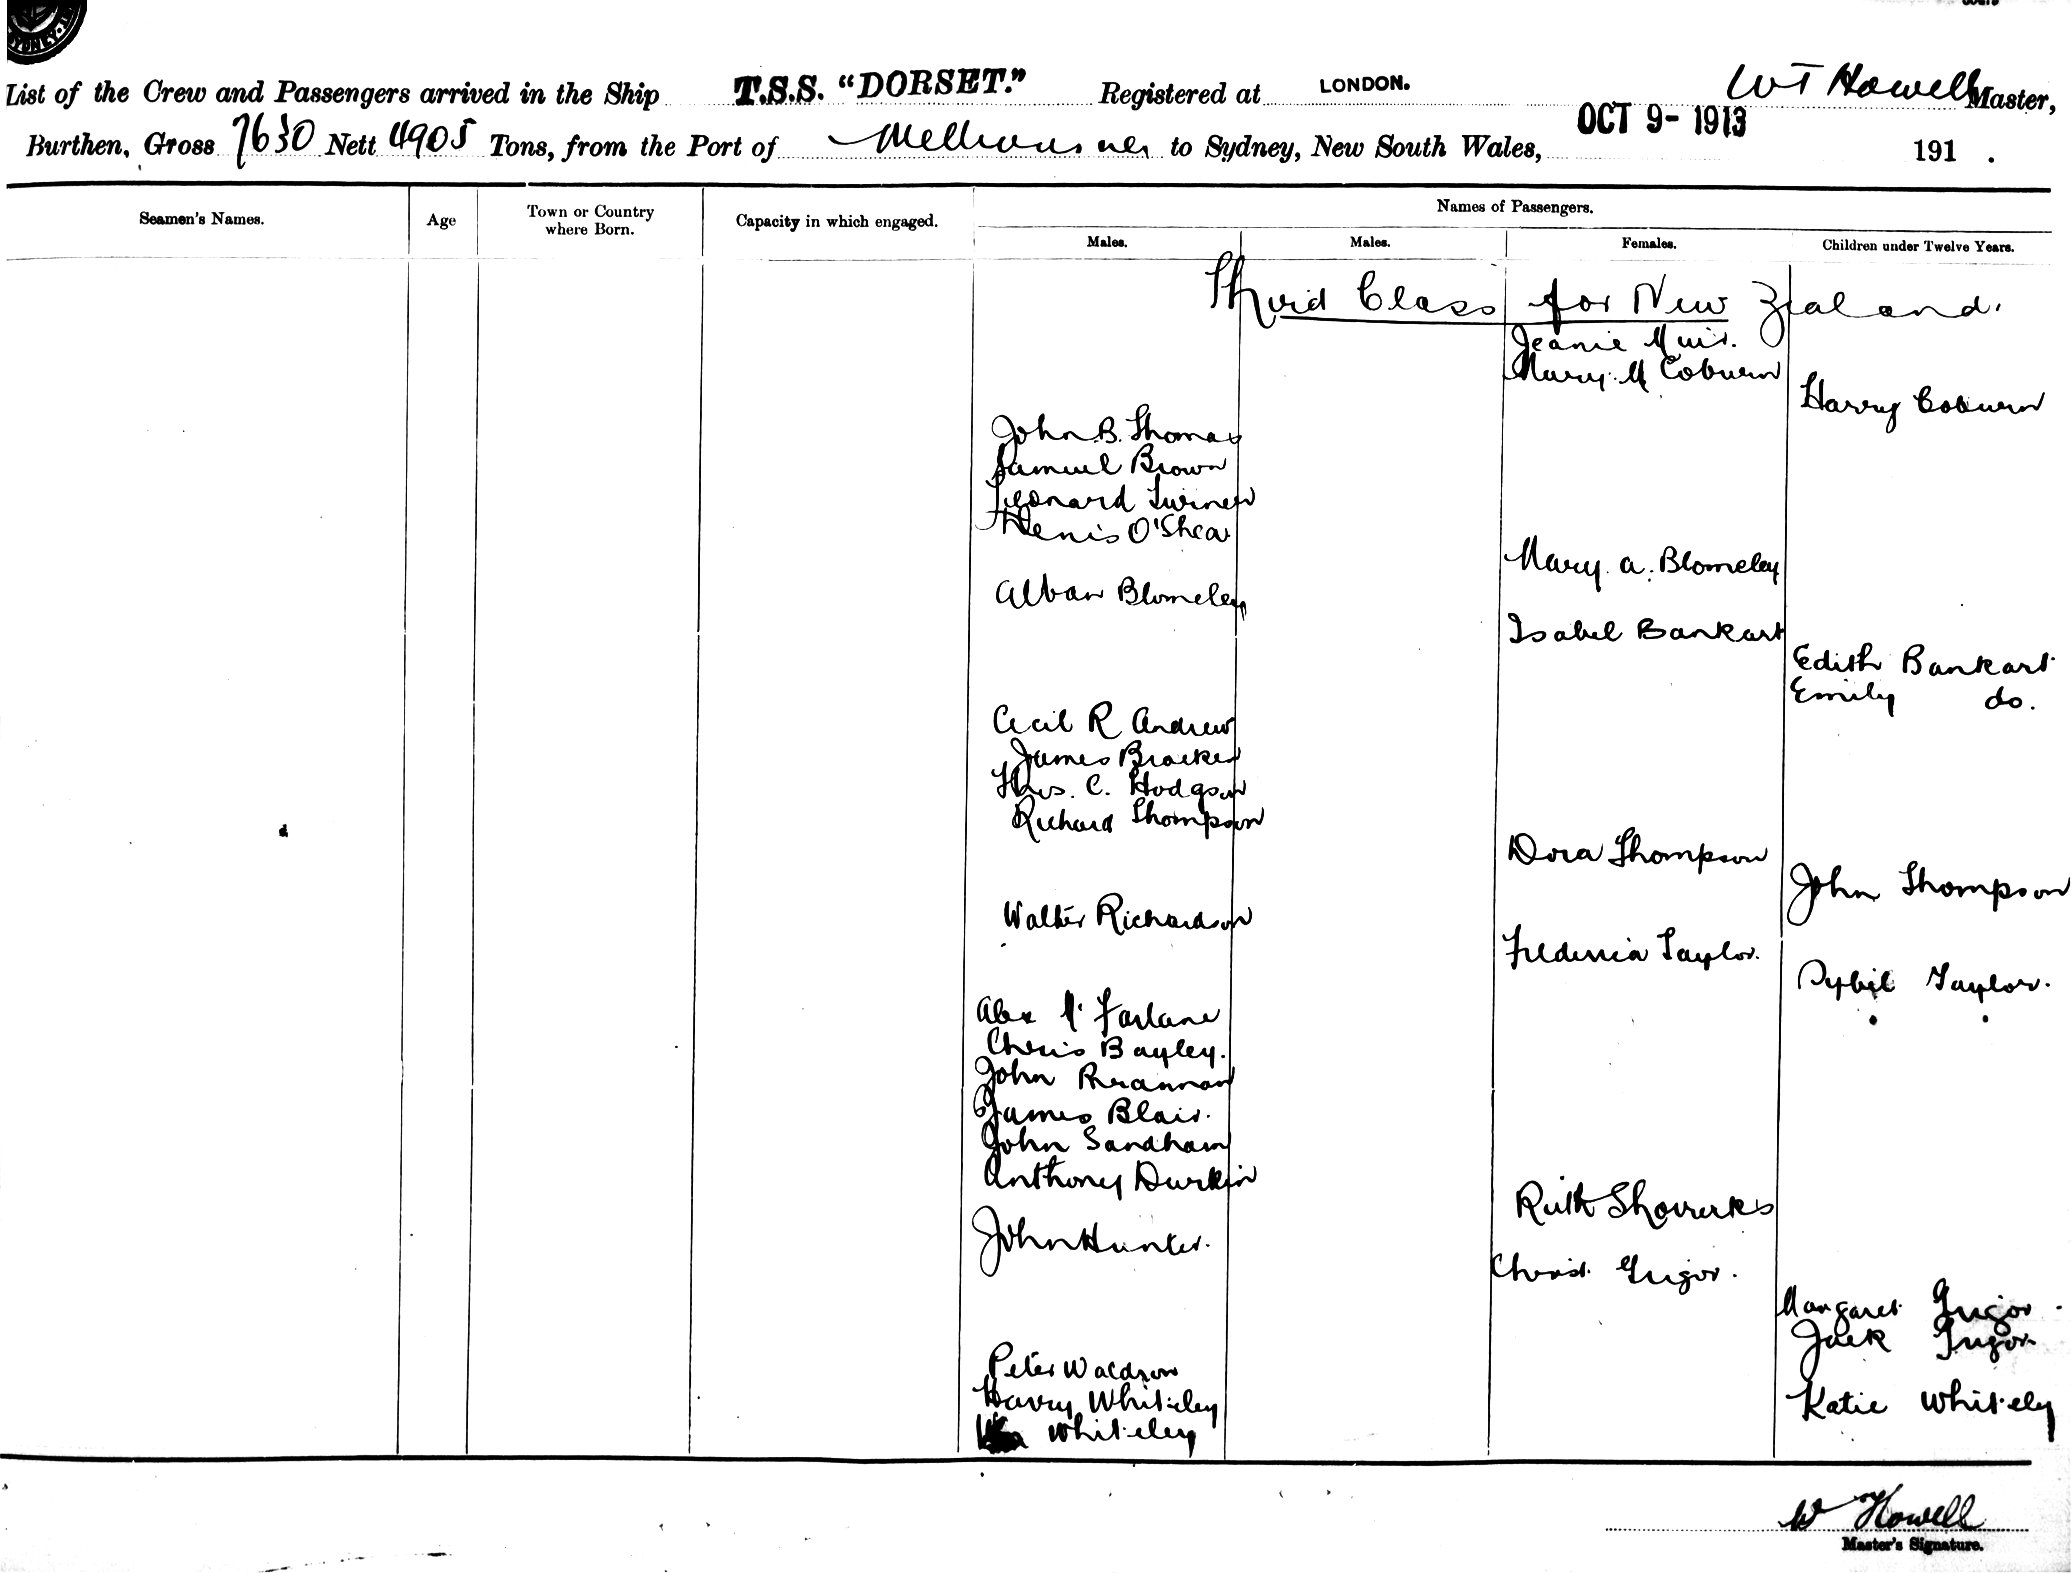 SYDNEY
List of the Crew and Passengers arrived in the Ship T.S.S. "DORSET." Registered at LONDON. W T Howell Master,
Burthen, Gross 7630 Nett 4905 Tons, from the Port of Melbourne to Sydney, New South Wales, OCT 9- 1913 191 .
Seamen's Names. Age Town or Country where Born. Capacity in which engaged. Names of Passengers.
Males. Males. Females. Children under Twelve Years.
Third Class for New Zealand.
Jeanie Muir.
Mary M Coburn
Harry Coburn
John B. Thomas
Samuel Brown
Leonard Turner
Denis O'Shea
Mary A. Blomeley
Alban Blomeley
Isabel Bankart
Edith Bankart
Emily do.
Cecil R Andrew
James Bracken
Thos. C. Hodgson
Richard Thompson
Dora Thompson
John Thompson
Walter Richardson
Frederica Taylor.
Sybil Taylor.
Alex Mc Farlane
Chris Bayley.
John Brannan
James Blair.
John Sandham
Anthony Durkin
Ruth
John Hunter.
Christ. Grigor.
Margaret Grigor.
Jack Grigor
Peter Waldron
Harry Whiteley
Katie Whiteley
Whiteley
W Howell
Master's Signature.